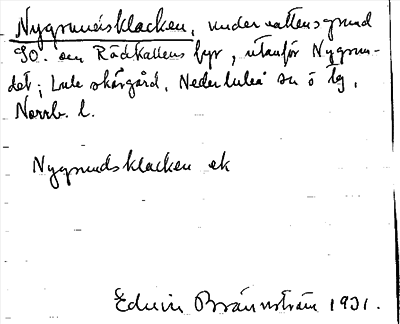 Nygrundsklacken, undervattensgrund
SO. om Rödkallens fyr, utanför Nygrun-
det i Lule skärgård, Nederluleå sn ö lg,
Norrb. l.
Nygrundsklacken ek
Edvin Brännström 1931.